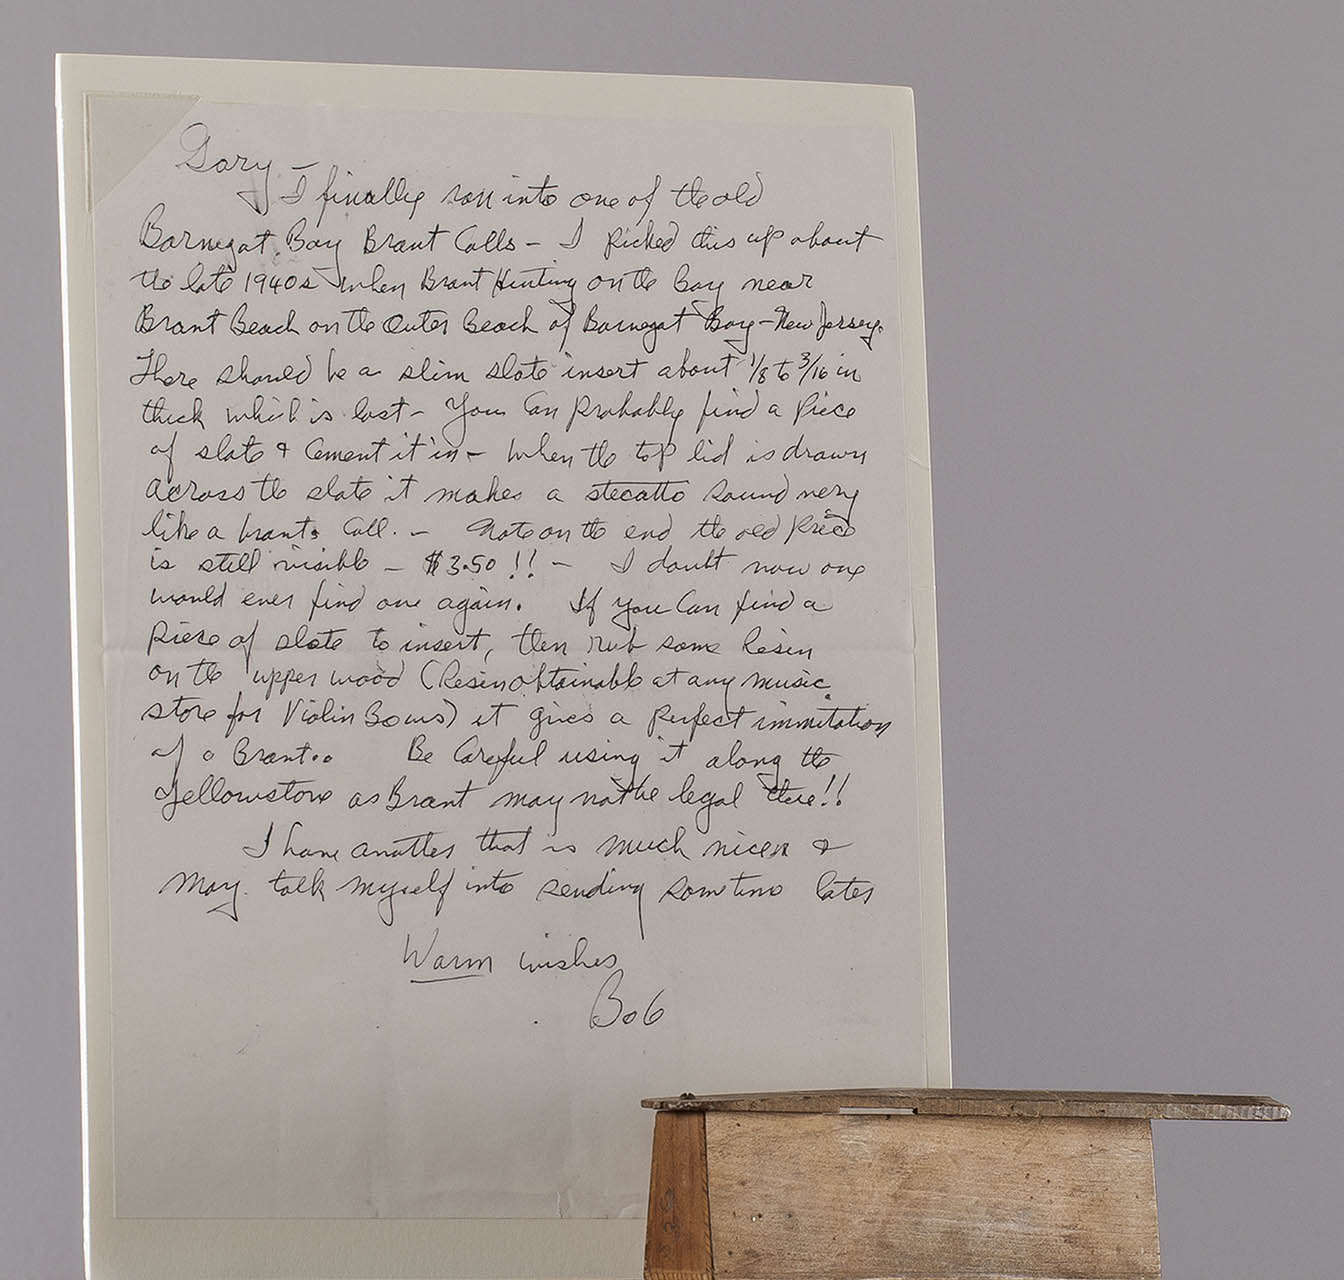 Gary –
I finally ran into one of the old
Barnegat Bay Brant Calls – I picked this up about
the late 1940s when Brant Hunting on the bay near
Brant Beach on the Outer Beach of Barnegat Bay – New Jersey.
There should be a slim slate insert about 1/8 to 3/16 in
thick which is lost – You Can Probably find a Piece
of slate & Cement it in – When the top lid is drawn
across the slate it makes a stecatto sound very
like a brants Call. – Note on the end the old Price
is still visible – $3.50 !! – I doubt now one
would ever find one again. If you Can find a
Piece of slate to insert, then rub some Resin
on the upper wood (Resin obtainable at any music
store for Violin Bows) it gives a perfect immitation
of a Brant.. Be Careful using it along the
Yellowstone as Brant may not be legal there!!
I have another that is much nicer &
May talk myself into sending sometime later
Warm wishes
Bob